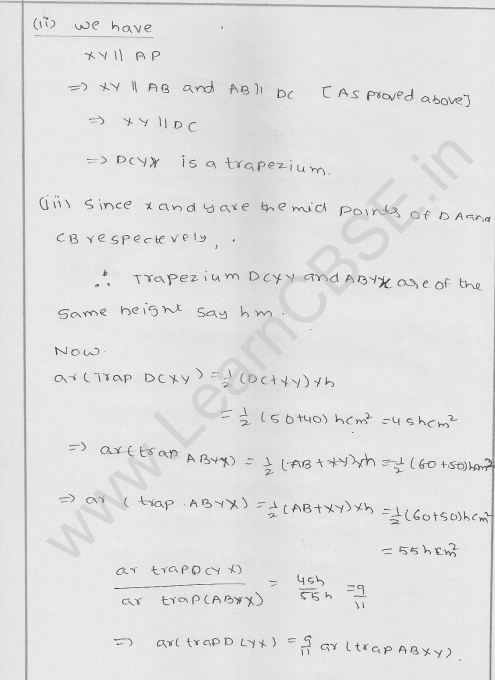 (ii) we have
XY || AP
⇒ XY || AB and AB || DC [As proved above]
⇒ XY || DC
⇒ DCYX is a trapezium.
(iii) Since x and y are the mid points of DA and
CB respectevely,
∴ Trapezium DCXY and ABYX are of the
same height say hm.
Now.
ar(Trap DCXY) = 1/2 (DC+XY)xh
= 1/2 (50+40) hcm² = 45hcm²
⇒ ar(trap ABYX) = 1/2 (AB+XY)xh = 1/2 (60+50)hm²
⇒ ar (trap. ABYX) = 1/2 (AB+XY)xh = 1/2 (60+50)hcm²
= 55hcm²
ar trapDCYX) / ar trap(ABYX) = 45h / 55h = 9/11
⇒ ar(trapDCYX) = 9/11 ar(trap ABXY).
www.LearnCBSE.in